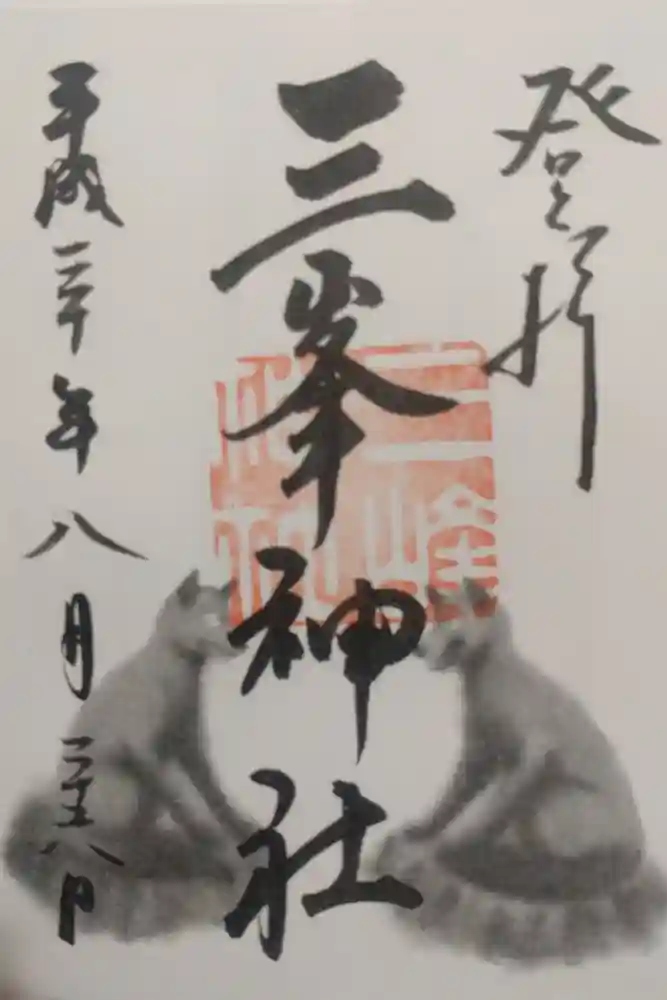 登拝
三峯神社
平成三十年八月二十八日
三峰神社